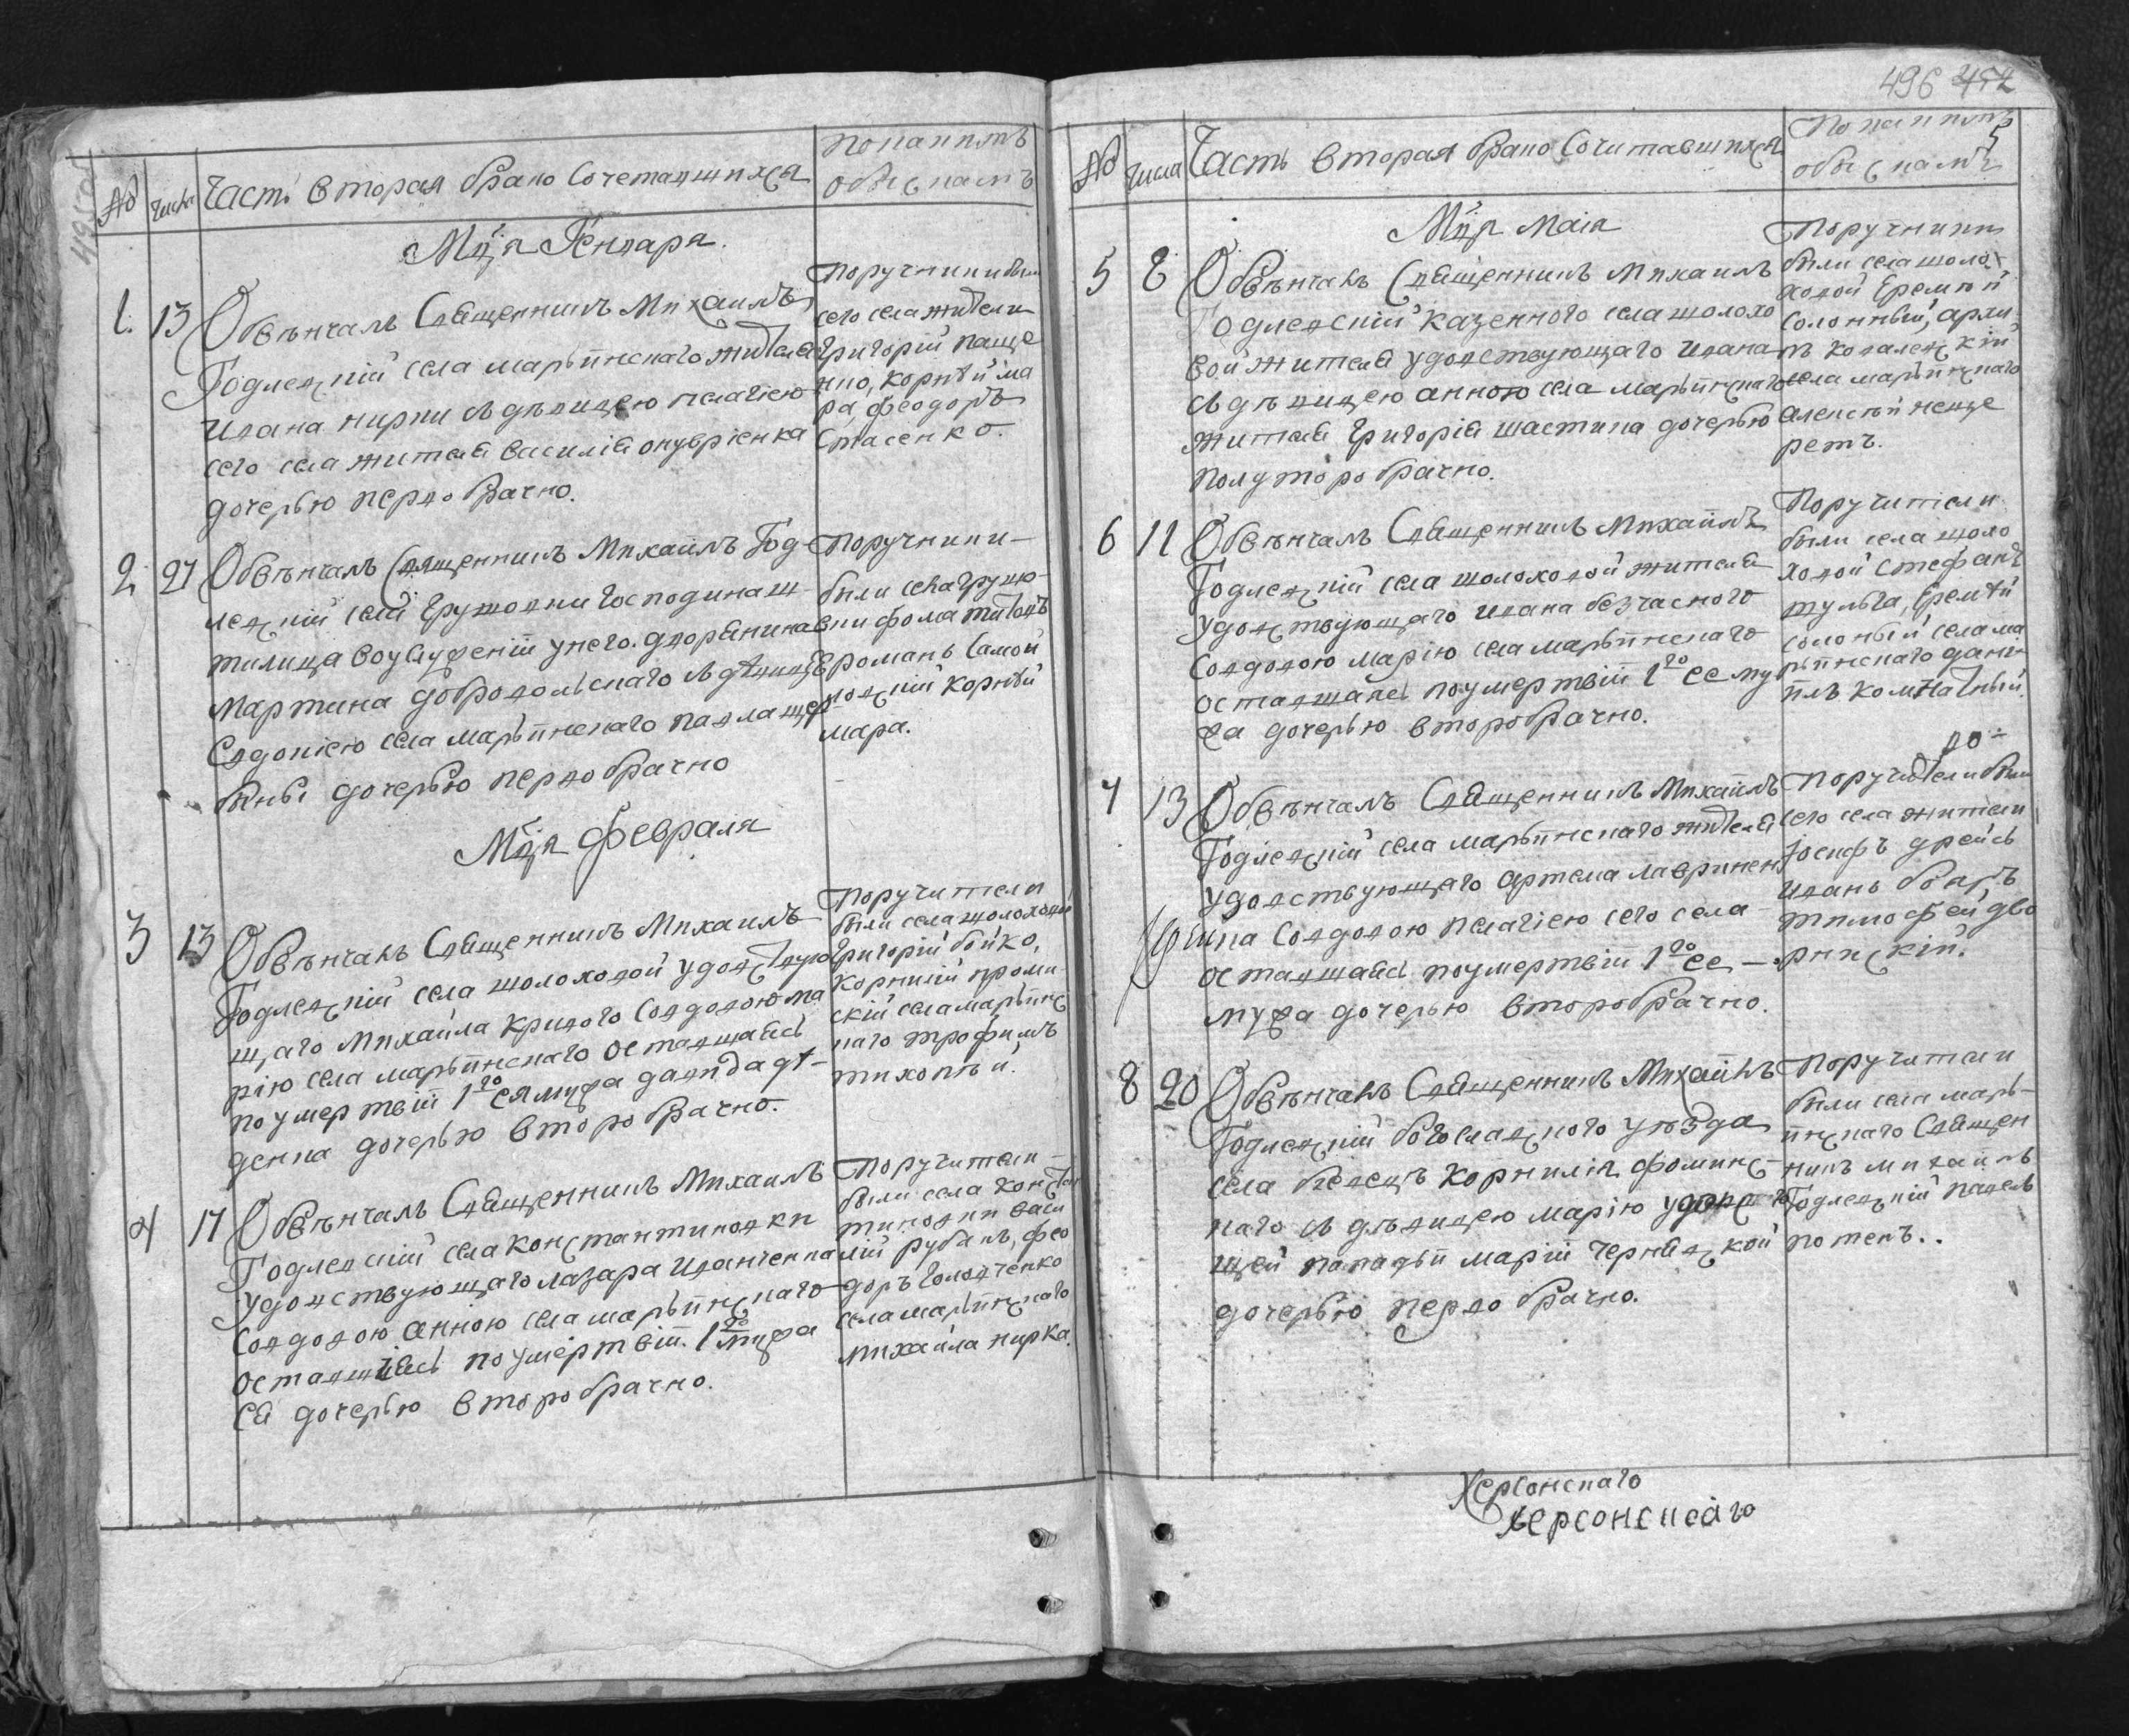 № Числа Часть вторая брако Сочетавшихся
По каким
обыскамъ
Мця Генваря.
1. 13 Обвѣнчалъ Священникъ Михаилъ
Годлевскій села марьинскаго жителя
Ивана кирки съ дѣвицею пелагіею
сего села жителя василія онуфріенка
дочерью первобрачно.
Поручники были
сего села жители
Григорій паще
нко, корнѣй ма
ра, феодоръ
Стасенко.
2. 27 Обвѣнчалъ Священникъ Михаилъ Год-
левскій села Грушовки Господина
тилица дворянина
мартина добровольскаго съ дѣвицею
Евдокіею села марьинскаго
дочерью первобрачно
Поручники-
были села Грушо-
вки фома
романъ Самой
корнѣй
мара.
Мця Февраля
3 13 Обвѣнчалъ Священникъ Михаилъ
Годлевскій села шолоховой удовствую
щаго Михаила Кривого Совдовою ма
рію села марьинскаго оставшаясь
по умертвіи 1го ея мужа давида дѣ-
денка дочерью второбрачно.
Поручители
были села шолоховой
Григорій бойко,
корнилій
скій села марьинс
каго трофимъ
тихопѣй.
4 17 Обвѣнчалъ Священникъ Михаилъ
Годлевскій села Константиновки
удовствующаго лазара Иванченка
Совдовою анною села марьинскаго
оставшаясь по умертвіи 1го мужа
ея дочерью второбрачно.
Поручители-
были села Констан
тиновки васи
лій рубанъ, фео
доръ Головченко
села марьинскаго
михаила кирка.
496 454
№ Числа Часть вторая брако Сочитавшихся
По каким
обыскамъ
5
Мця Маія
5 8 Обвѣнчалъ Священникъ Михаилъ
Годлевскій казенного села шолохо
вой жителя удовствующаго Ивана
съ дѣвицею анною села марьинскаго
жителя Григорія шастина дочерью
полуторобрачно.
Поручники
были села шоло
ховой Еремѣй
Солонный, архи
пъ Ковалевскій
села марьинскаго
алексѣй неще
ретъ.
6 11 Обвѣнчалъ Священникъ Михаилъ
Годлевскій села шолоховой жителя
удовствующаго ивана безчасного
Совдовою марію села марьинскаго
оставшаясь по умертвіи 1го ее му
жа дочерью второбрачно.
Поручители
были села шоло
ховой Стефанъ
шульга, Еремѣй
солоный села ма
рьинскаго дани-
илъ комнатный.
7 13 Обвѣнчалъ Священникъ Михаилъ
Годлевскій села марьинскаго жителя
удовствующаго артема лавринен
Совдовою пелагіею сего села
оставшаясь по умертвіи 1го ее —
мужа дочерью второбрачно.
Поручители были
сего села жители
Іосифъ
иванъ
тимофей дво
рнискій.
8 20 Обвѣнчалъ Священникъ Михаилъ
Годлевскій богославского уѣзда
села Корнилія фоминс-
каго съ дѣвицею марію
щей попадьи маріи чернявской
дочерью первобрачно.
Поручители
были села марь-
инскаго Священ
никъ михаилъ
Годлевскій павелъ
потекъ..
Херсонскаго
херсонскаго